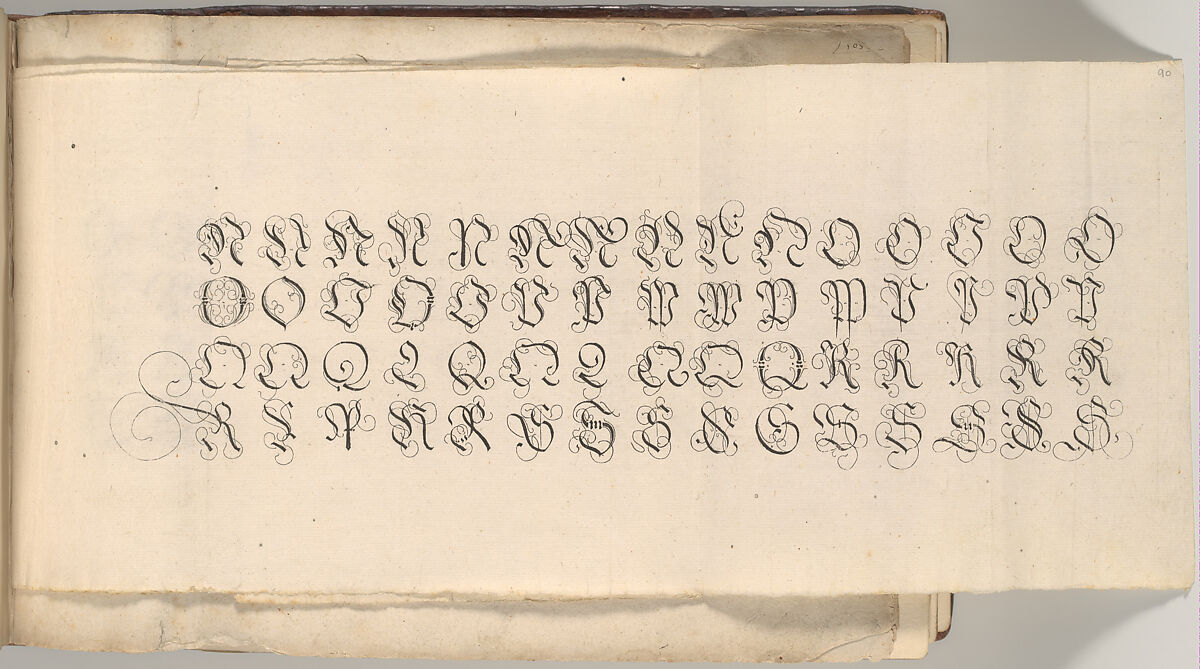 90
N N N N N N N N N N O O O O O
O O O O O P P P P P P P P P P
Q Q Q Q Q Q Q Q Q Q R R R R R
R R R R R S S S S S S S S S S